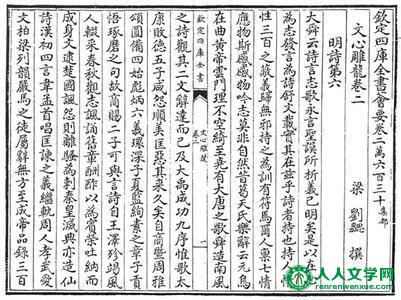 欽定四庫全書會要卷二萬六百三十 集部
文心雕龍卷二
梁 劉勰 撰
明詩第六
大舜云詩言志歌永言聖謨所析義已明矣是以在心
為志發言為詩舒文載實其在茲乎詩者持也持人情
性三百之蔽義歸無邪持之為訓有符焉爾人稟七情
應物斯感感物吟志莫非自然昔葛天氏樂辭云元鳥
在曲黄帝雲門理不空綺至堯有大唐之歌舜造南風
欽定四庫全書
文心雕龍
卷二
一
之詩觀其二文辭達而已及大禹成功九序惟歌太
康敗德五子咸怨順美匡惡其來久矣自商曁周雅
頌圓備四始彪炳六義環深子夏監絢素之章子貢
悟琢磨之句故商賜二子可與言詩自王澤殄竭風
人輟采春秋觀志諷誦舊章酬酢以為賓榮吐納而
成身文逮楚國諷怨則離騷為刺秦皇滅典亦造仙
詩漢初四言韋孟首唱匡諫之義繼軌周人孝武愛
文柏梁列韻嚴馬之徒屬辭無方至成帝品錄三百
人人文学网
renrenwenxue.com